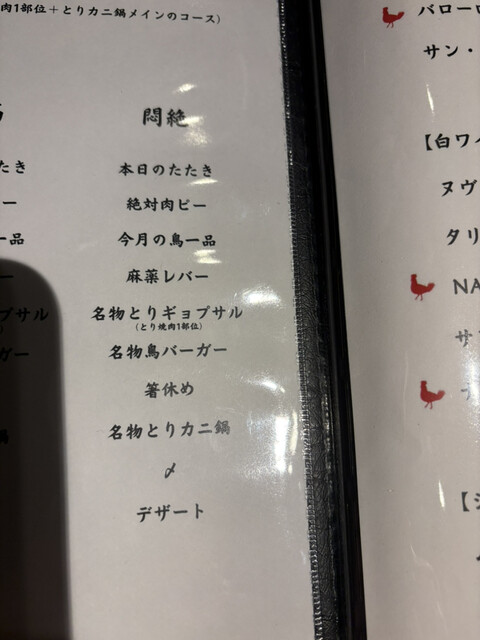 肉1部位＋とりカニ鍋メインのコース）
悶絶
本日のたたき
絶対肉ピー
今月の鳥一品
麻薬レバー
名物とりギョプサル
（とり焼肉1部位）
名物鳥バーガー
箸休め
名物とりカニ鍋
〆
デザート
たき
ー
一品
ー
プサル
ガー
鍋
バローロ
サン・
【白ワイ
ヌヴ
タリ
NA
サ